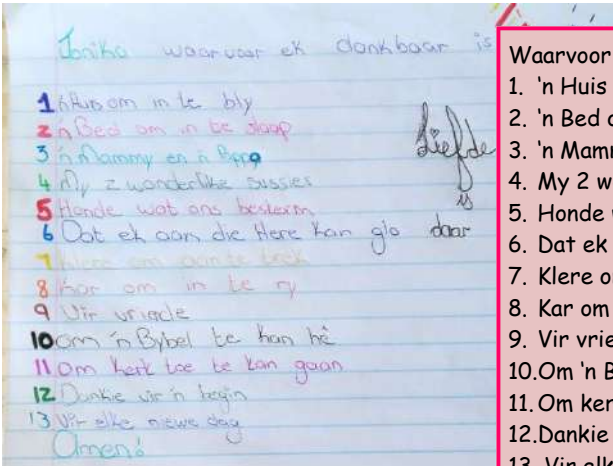 Jonika waarvoor ek dankbaar is
1 'n Huis om in te bly
2 'n Bed om in te slaap
3 'n Mammy en 'n Pappa
4 My 2 wonderlike sussies
5 Honde wat ons beskerm
6 Dat ek aan die Here kan glo
7 Klere om aan te trek
8 Kar om in te ry
9 Vir vriede
10 om 'n Bybel te kan hê
11 Om kerk toe te kan gaan
12 Dankie vir 'n begin
13 Vir elke niewe dag
Amen!
Liefde
is
daar
Waarvoor
1. 'n Huis
2. 'n Bed
3. 'n Mam
4. My 2 w
5. Honde
6. Dat ek
7. Klere o
8. Kar om
9. Vir vrie
10. Om 'n B
11. Om ker
12. Dankie
13. Vir elk